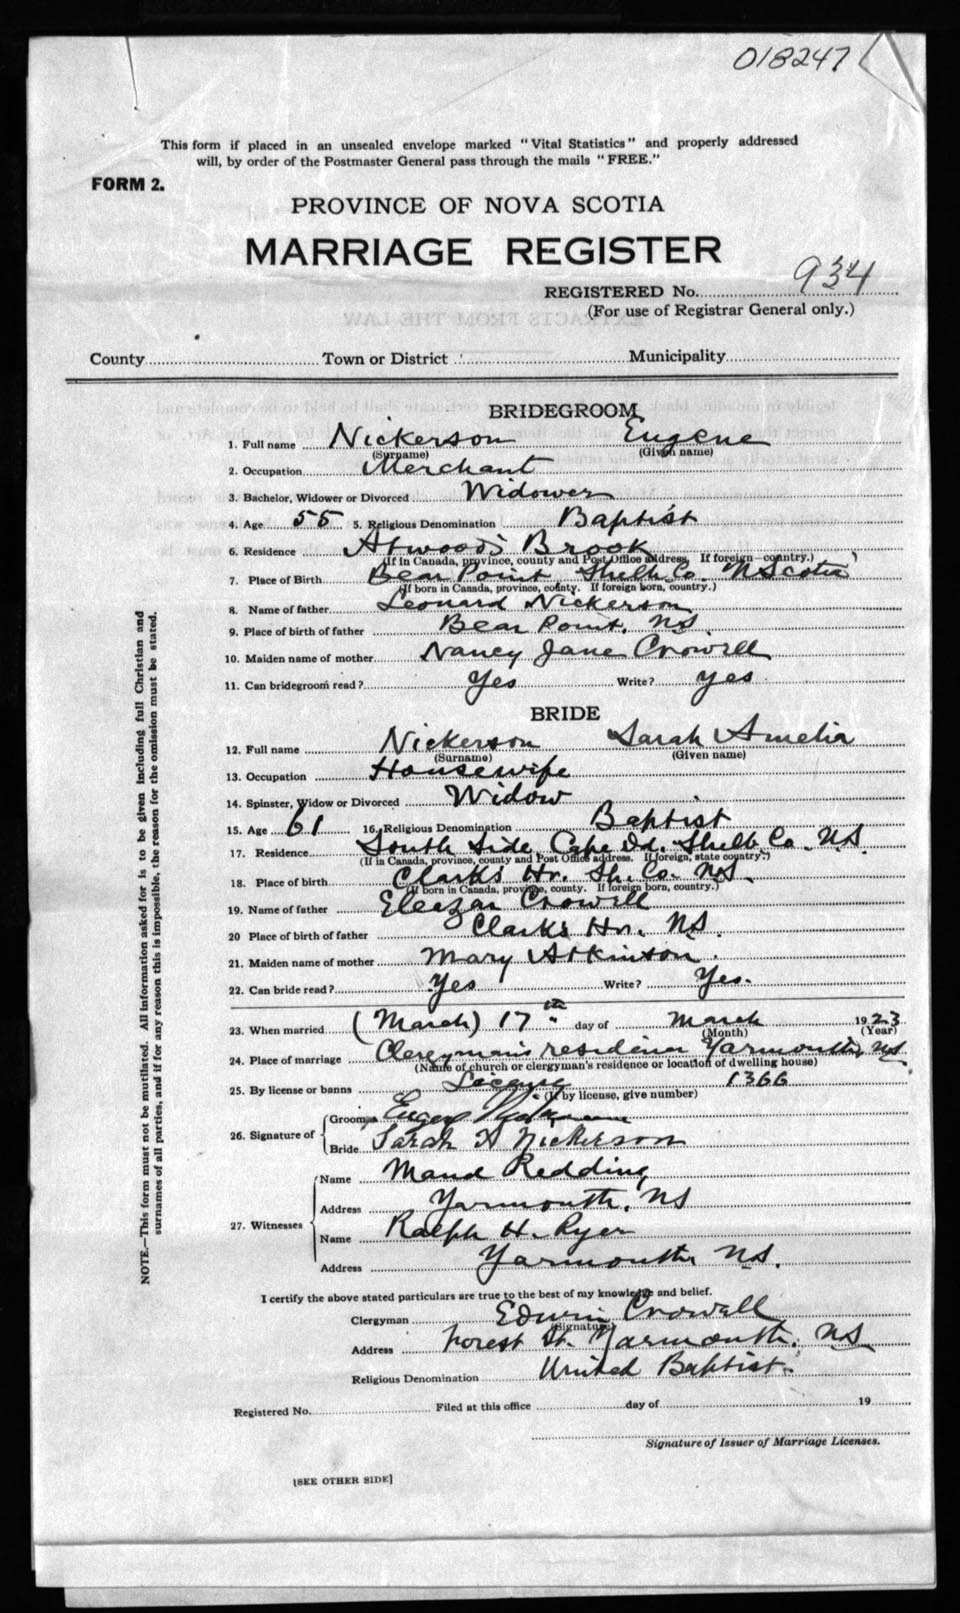 018247
This form if placed in an unsealed envelope marked "Vital Statistics" and properly addressed
will, by order of the Postmaster General pass through the mails "FREE."
FORM 2.
PROVINCE OF NOVA SCOTIA
MARRIAGE REGISTER
REGISTERED No. 934
(For use of Registrar General only.)
County Town or District Municipality
BRIDEGROOM
1. Full name Nickerson Eugene
(Surname) (Given name)
2. Occupation Merchant
3. Bachelor, Widower or Divorced Widower
4. Age 55 5. Religious Denomination Baptist
6. Residence Atwood's Brook
(If in Canada, province, county and Post Office address. If foreign—country.)
7. Place of Birth Bear Point Shelb Co. N Scotia
(If born in Canada, province, county. If foreign born, country.)
8. Name of father Leonard Nickerson
9. Place of birth of father Bear Point. NS
10. Maiden name of mother Nancy Jane Crowell
11. Can bridegroom read? Yes Write? yes
BRIDE
12. Full name Nickerson Sarah Amelia
(Surname) (Given name)
13. Occupation Housewife
14. Spinster, Widow or Divorced Widow
15. Age 61 16. Religious Denomination Baptist
17. Residence South Side Cape Id. Shelb Co. NS.
(If in Canada, province, county and Post Office address. If foreign, state country.)
18. Place of birth Clarks Hr. Sh. Co. NS.
(If born in Canada, province, county. If foreign born, country.)
19. Name of father Eleazar Crowell
20 Place of birth of father Clarks Hr. NS.
21. Maiden name of mother Mary Atkinson.
22. Can bride read? Yes Write? Yes.
23. When married (March) 17th day of March 1923
(Month) (Year)
24. Place of marriage Clergyman's residence Yarmouth, NS
(Name of church or clergyman's residence or location of dwelling house)
25. By license or banns License 1366
(If by license, give number)
26. Signature of Groom Eugene Nickerson
Bride Sarah A Nickerson
27. Witnesses Name Maud Redding
Address Yarmouth, NS
Name Ralph H. Pyer
Address Yarmouth NS.
I certify the above stated particulars are true to the best of my knowledge and belief.
Clergyman Edwin Crowell
(Signature)
Address Forest St. Yarmouth, NS
Religious Denomination United Baptist.
Registered No. Filed at this office day of 19
Signature of Issuer of Marriage Licenses.
[SEE OTHER SIDE]
NOTE.—This form must not be mutilated. All information asked for is to be given including full Christian and
surnames of all parties, and if for any reason this is impossible, the reason for the omission must be stated.